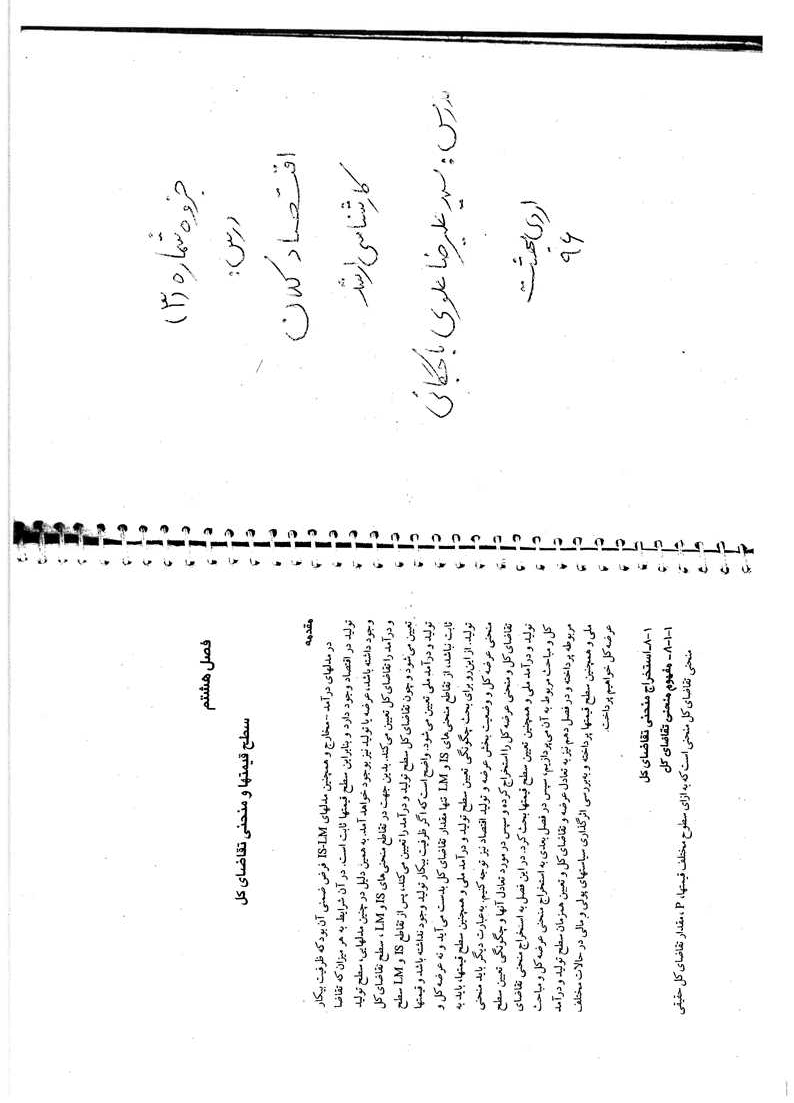 جزوه شماره (۳)
درس:
اقتصاد کلان
کارشناسی ارشد
مدرس: سید علیرضا علوی باجگانی
اردیبهشت
۹۶
فصل هشتم
سطح قیمتها و منحنی تقاضای کل
مقدمه
در مدلهای درآمد - مخارج و همچنین مدلهای IS-LM فرض ضمنی آن بود که ظرفیت بیکار
تولید در اقتصاد وجود دارد و بنابراین سطح قیمتها ثابت است. در آن شرایط به هر میزان که تقاضا
وجود داشته باشد، عرضه یا تولید نیز بوجود خواهد آمد. به همین دلیل در چنین مدلهایی، سطح تولید
و درآمد را تقاضای کل تعیین می‌کند. بدین جهت در تقاطع منحنی‌های IS و LM، سطح تقاضای کل
تعیین می‌شود و چون تقاضای کل سطح تولید و درآمد را تعیین می‌کند، پس از تقاطع IS و LM سطح
تولید و درآمد ملی تعیین می‌شود. واضح است که اگر ظرفیت بیکار تولید وجود نداشته باشد و قیمتها
ثابت نباشد، از تقاطع منحنی‌های IS و LM تنها مقدار تقاضای کل بدست می‌آید و نه عرضه کل و
تولید. از این رو برای بحث چگونگی تعیین سطح تولید و درآمد ملی و همچنین سطح قیمتها، باید به
منحنی عرضه کل و وضعیت بخش عرضه و تولید اقتصاد نیز توجه کنیم. به‌عبارت دیگر باید منحنی
تقاضای کل و منحنی عرضه کل را استخراج کرده و سپس در مورد تعادل آنها و چگونگی تعیین سطح
تولید و درآمد ملی و همچنین تعیین سطح قیمتها بحث کرد. در این فصل به استخراج منحنی تقاضای
کل و مباحث مربوط به آن می‌پردازیم، سپس در فصل بعدی به استخراج منحنی عرضه کل و مباحث
مربوطه پرداخته و در فصل دهم نیز به تعادل عرضه و تقاضای کل و تعیین همزمان سطح تولید و درآمد
ملی و همچنین سطح قیمتها پرداخته و به‌بررسی اثرگذاری سیاستهای پولی و مالی در حالات مختلف
عرضه کل خواهیم پرداخت.
۸-۱- استخراج منحنی تقاضای کل
۸-۱-۱- مفهوم منحنی تقاضای کل
منحنی تقاضای کل منحنی است که به ازای سطوح مختلف قیمتها، P، مقدار تقاضای کل حقیقی